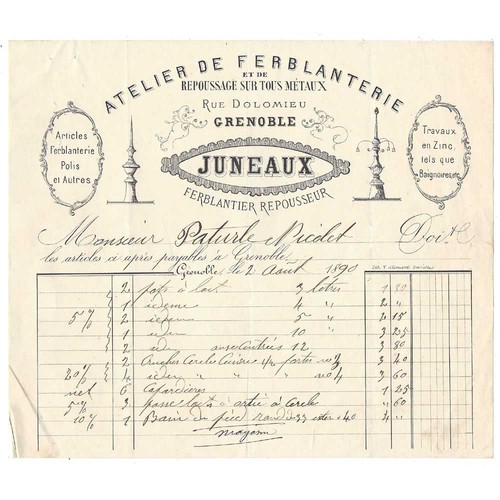 ATELIER DE FERBLANTERIE
ET DE
REPOUSSAGE SUR TOUS MÉTAUX
RUE DOLOMIEU
GRENOBLE
Articles
Ferblanterie
Polis
et Autres
JUNEAUX
FERBLANTIER REPOUSSEUR
Travaux
en Zinc,
tels que
Baignoires, etc
Monsieur Paturle Nicolet Doit
les articles ci après payables à Grenoble.
Grenoble, le 2 Août 1890
2 pots à lait 3 litres 1 80
1 idem 4 " 2 "
5% 2 idem 5 " 2 15
1 idem 10 " 3 25
2 idem 12 3 80
2 Cruches Cerclées 1/2 fortes no 3 3 40
20% 4 idem " " no 4 3 60
net 6 1 25
5% 3 à Cercles " 60
10% 1 Bain de pied rond 33 40 4 "
moyenne